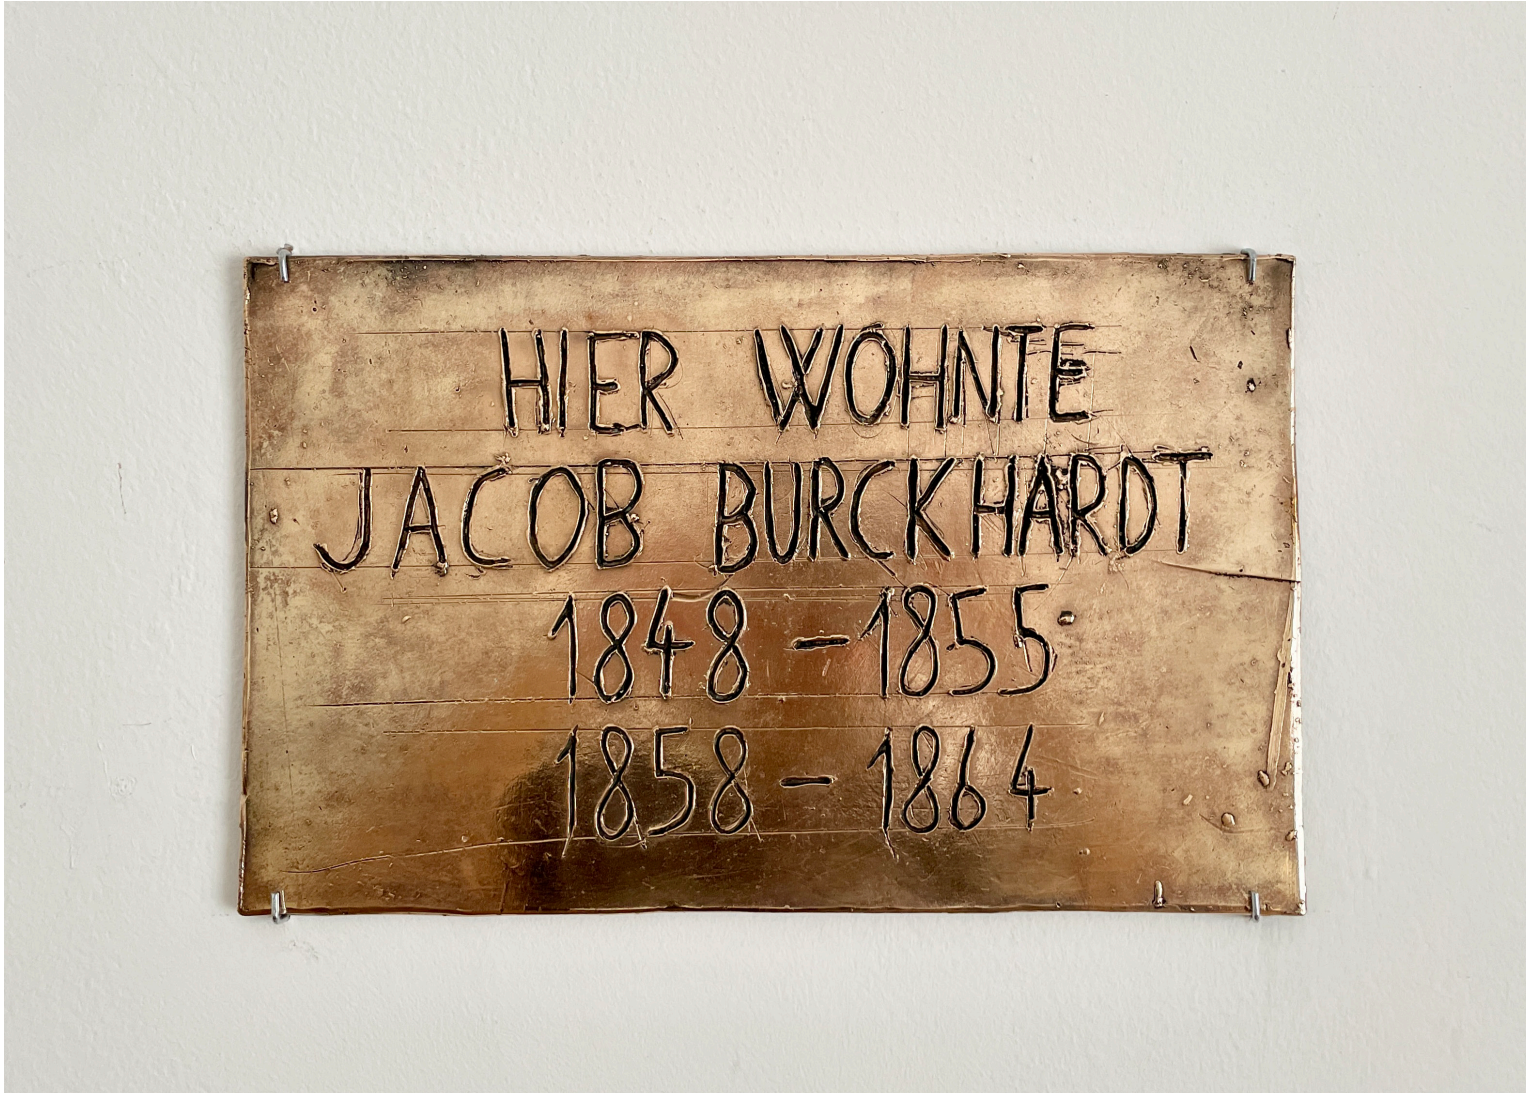 HIER WOHNTE
JACOB BURCKHARDT
1848 – 1855
1858 – 1864